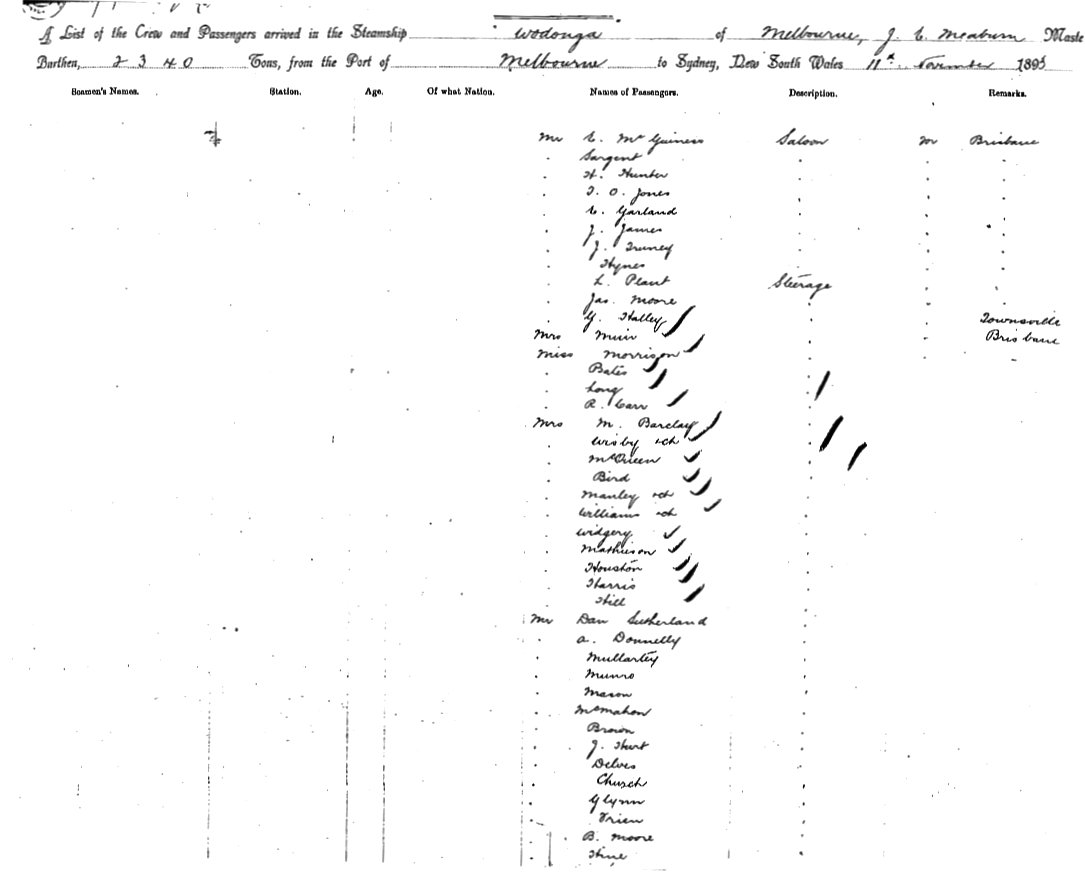 A List of the Crew and Passengers arrived in the Steamship Wodonga of Melbourne, J. C. Meaburn Maste
Burthen, 2340 Tons, from the Port of Melbourne to Sydney, New South Wales 11th November 1895
Seamen's Names. Station. Age. Of what Nation. Names of Passengers. Description. Remarks.
Mr C. McGuiness Saloon Brisbane
Sargent
H. Hunter
T. O. Jones
C. Garland
J. James
J.
Hynes
L. Plant Steerage
Jas. Moore
G. Halley Townsville
Mrs Muir Brisbane
Miss Morrison
Bates
Long
R. Carr
Mrs M. Barclay
Wisby &ch
McQueen
Bird
Manley &ch
Williams &ch
Widgery
Mathieson
Houston
Harris
Hill
Mr Dan Sutherland
A. Donnelly
Mullarley
Munro
Mason
McMahon
Brown
J. Hurt
Delves
Church
Glynn
B. Moore
Hine